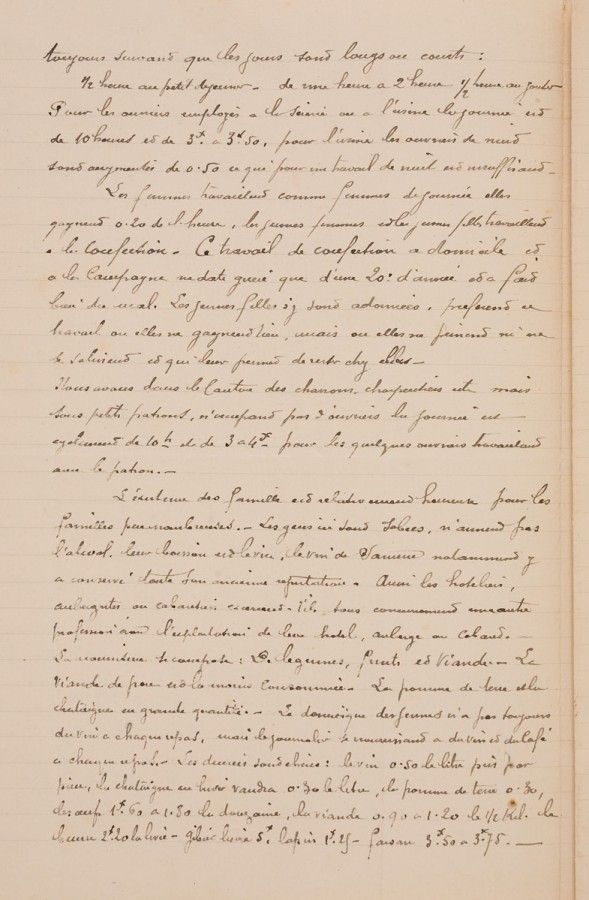 toujours suivant que les jours sont longs ou courts :
1/2 heure au petit dejeuner - de une heure a 2 heure 1/2 heure au gouter
Pour les ouvriers employés a la Scierie ou a l'usine la journée est
de 10 heures et de 3f a 3f.50, pour l'usine les ouvriers de nuit
sont augmentés de 0.50 ce qui pour un travail de nuit est insuffisant -
Les femmes travaillent comme femmes de journée elles
gagnent 0.20 de l'heure, les jeunes femmes et les jeunes filles travaillent
a la Confection - Ce travail de confection a domicile et
a la Campagne ne date guère que d'une 20e d'année et a fait
bien du mal. Les jeunes filles s'y sont adonnées, preferent ce
travail ou elles ne gagnent rien, mais ou elles ne peinent ni ne
se salissent et qui leur permet de rester chez elles -
Nous avons dans le Canton des charrons, charpentiers etc mais
tous petits patrons, n'occupant pas d'ouvriers la journée est
egalement de 10h et de 3 a 4f pour les quelques ouvriers travaillant
avec le patron. -
L'existence des famille est relativement heureuse pour les
familles peu nombreuses. - Les gens ici sont sobres, n'aiment pas
l'alcool, leur boisson est le vin, le vin de notamment y
a conservé toute son ancienne reputation - Aussi les hoteliers,
aubergistes ou cabaretiers exercent-t'ils tous concurremment une autre
profession l'exploitation de leur hotel, auberge ou Cabaret. -
La nourriture se compose : De legumes, fruits et Viande - La
Viande de porc est la moins Consommée - La pomme de terre et la
chataigne en grande quantité. - Le domestique des fermes n'a pas toujours
du vin a chaque repas, mais le journalier se nourrissant a du vin et du Café
a chaque repas. - Les denrées sont chères : le vin 0.50 le litre pris par
pièce, la chataigne en hiver vaudra 0.30 le litre, la pomme de terre 0.30,
les oeufs 1f.60 a 1.80 la douzaine, la viande 0.90 a 1.20 le 1/2 Kil. le
beurre 2f.20 la livre - gibier lievre 5f lapin 1f.25 - faisan 3f.50 a 3f.75. -